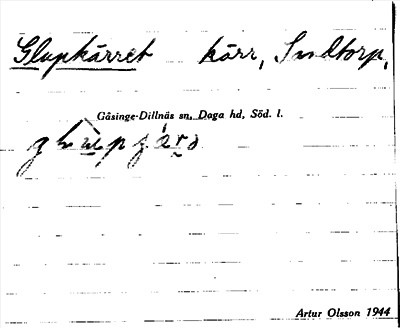 Glupkärret kärr, Sundtorp,
Gåsinge-Dillnäs sn, Daga hd, Söd. l.
Artur Olsson 1944